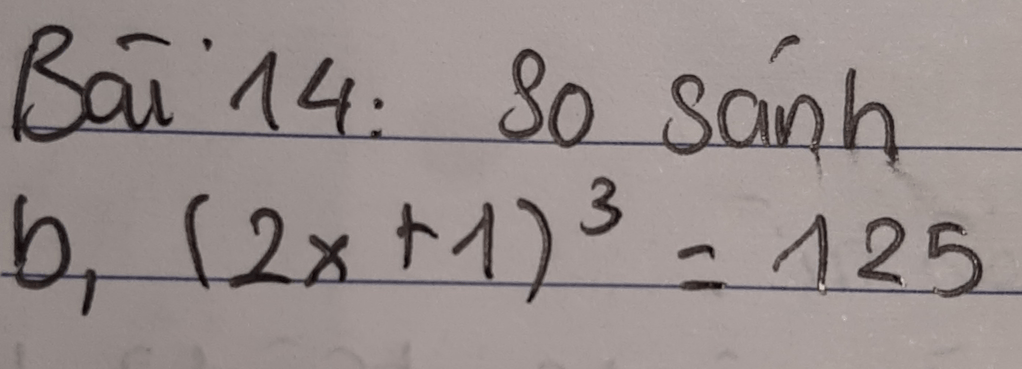 Bài 14: So sánh
b, (2x+1)³ = 125